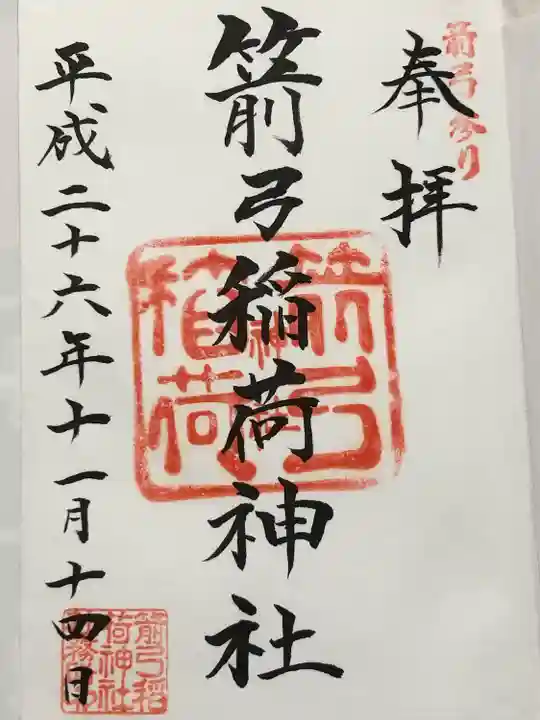 箭弓参り
奉拝
箭弓稲荷神社
箭弓稲荷神社
平成二十六年十一月十四日
箭弓稲
荷神社
社務所